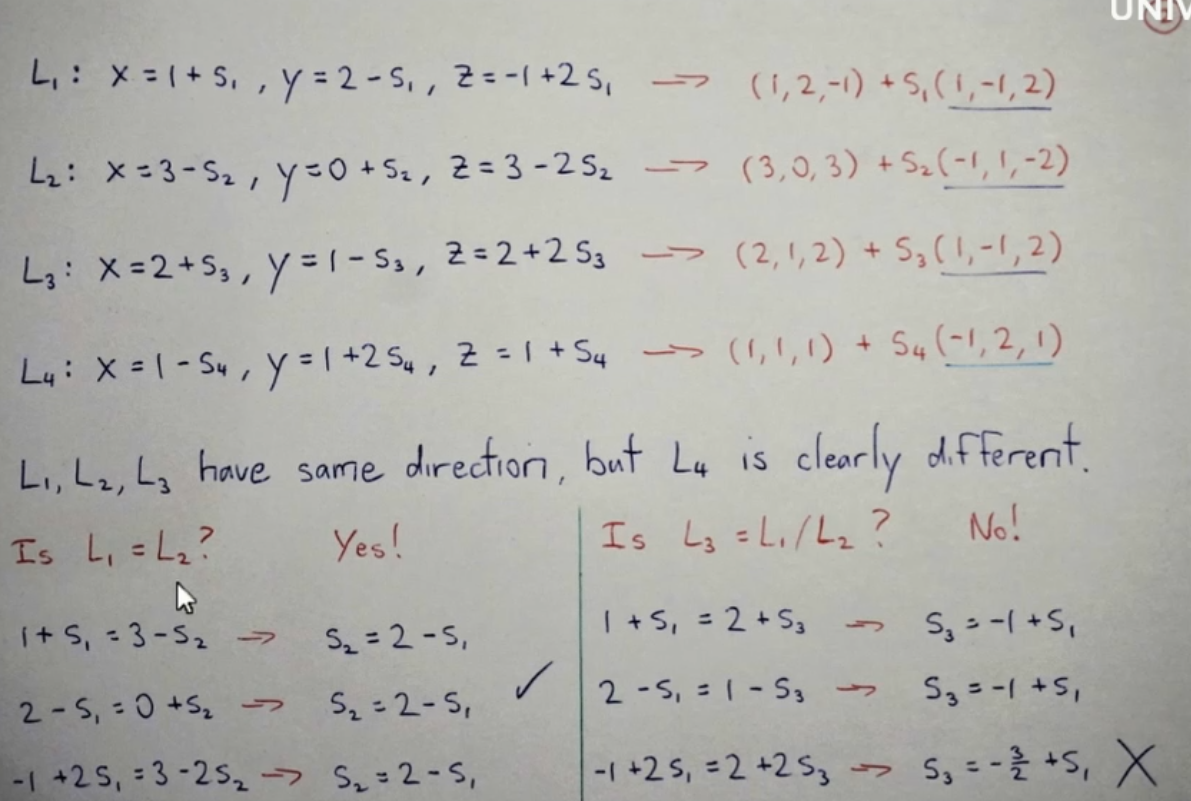 UNIV
L₁: x = 1 + S₁, y = 2 - S₁, z = -1 + 2S₁ → (1, 2, -1) + S₁(1, -1, 2)
L₂: x = 3 - S₂, y = 0 + S₂, z = 3 - 2S₂ → (3, 0, 3) + S₂(-1, 1, -2)
L₃: x = 2 + S₃, y = 1 - S₃, z = 2 + 2S₃ → (2, 1, 2) + S₃(1, -1, 2)
L₄: x = 1 - S₄, y = 1 + 2S₄, z = 1 + S₄ → (1, 1, 1) + S₄(-1, 2, 1)
L₁, L₂, L₃ have same direction, but L₄ is clearly different.
Is L₁ = L₂? Yes!
1 + S₁ = 3 - S₂ → S₂ = 2 - S₁
2 - S₁ = 0 + S₂ → S₂ = 2 - S₁ ✓
-1 + 2S₁ = 3 - 2S₂ → S₂ = 2 - S₁
Is L₃ = L₁/L₂? No!
1 + S₁ = 2 + S₃ → S₃ = -1 + S₁
2 - S₁ = 1 - S₃ → S₃ = -1 + S₁
-1 + 2S₁ = 2 + 2S₃ → S₃ = -3/2 + S₁ X